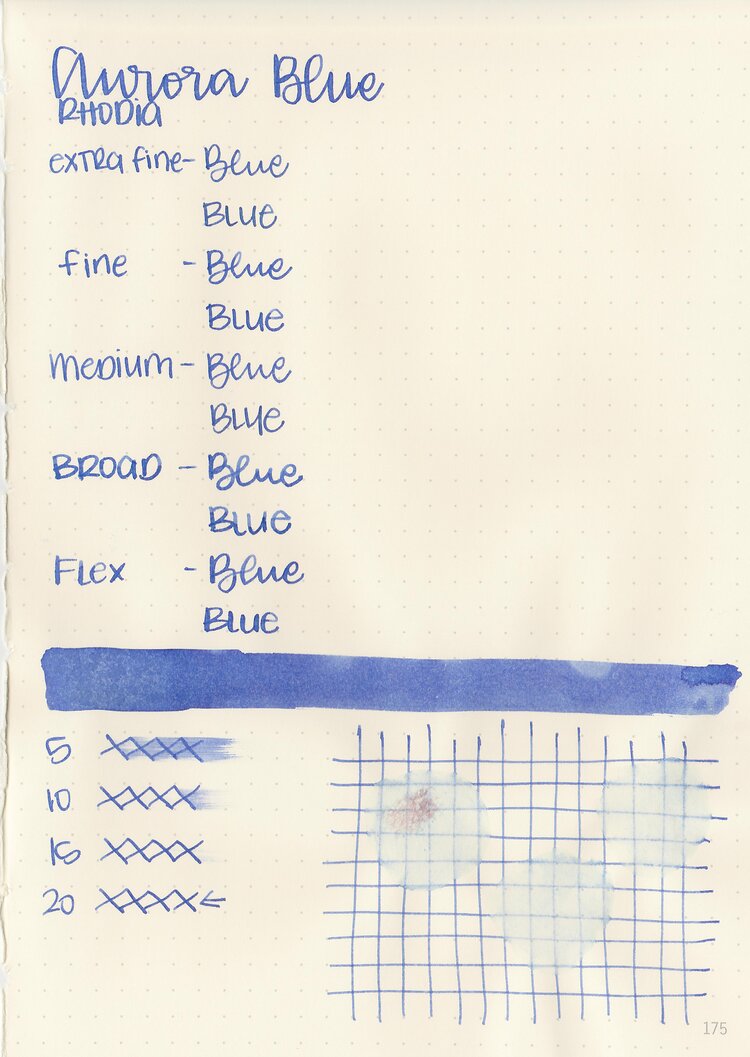 Aurora Blue
RHODIA
extra fine- Blue
BLUE
fine - Blue
BLUE
medium - Blue
BLUE
BROAD - Blue
BLUE
Flex - Blue
BLUE
5 XXXX
10 XXXX
15 XXXX
20 XXXX←
175